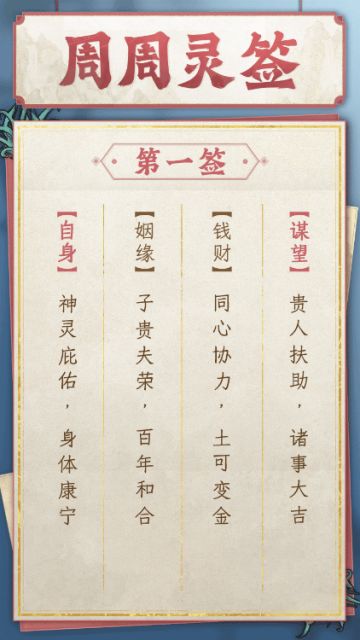 周周灵签
第一签
【谋望】
贵人扶助，诸事大吉
【钱财】
同心协力，土可变金
【姻缘】
子贵夫荣，百年和合
【自身】
神灵庇佑，身体康宁